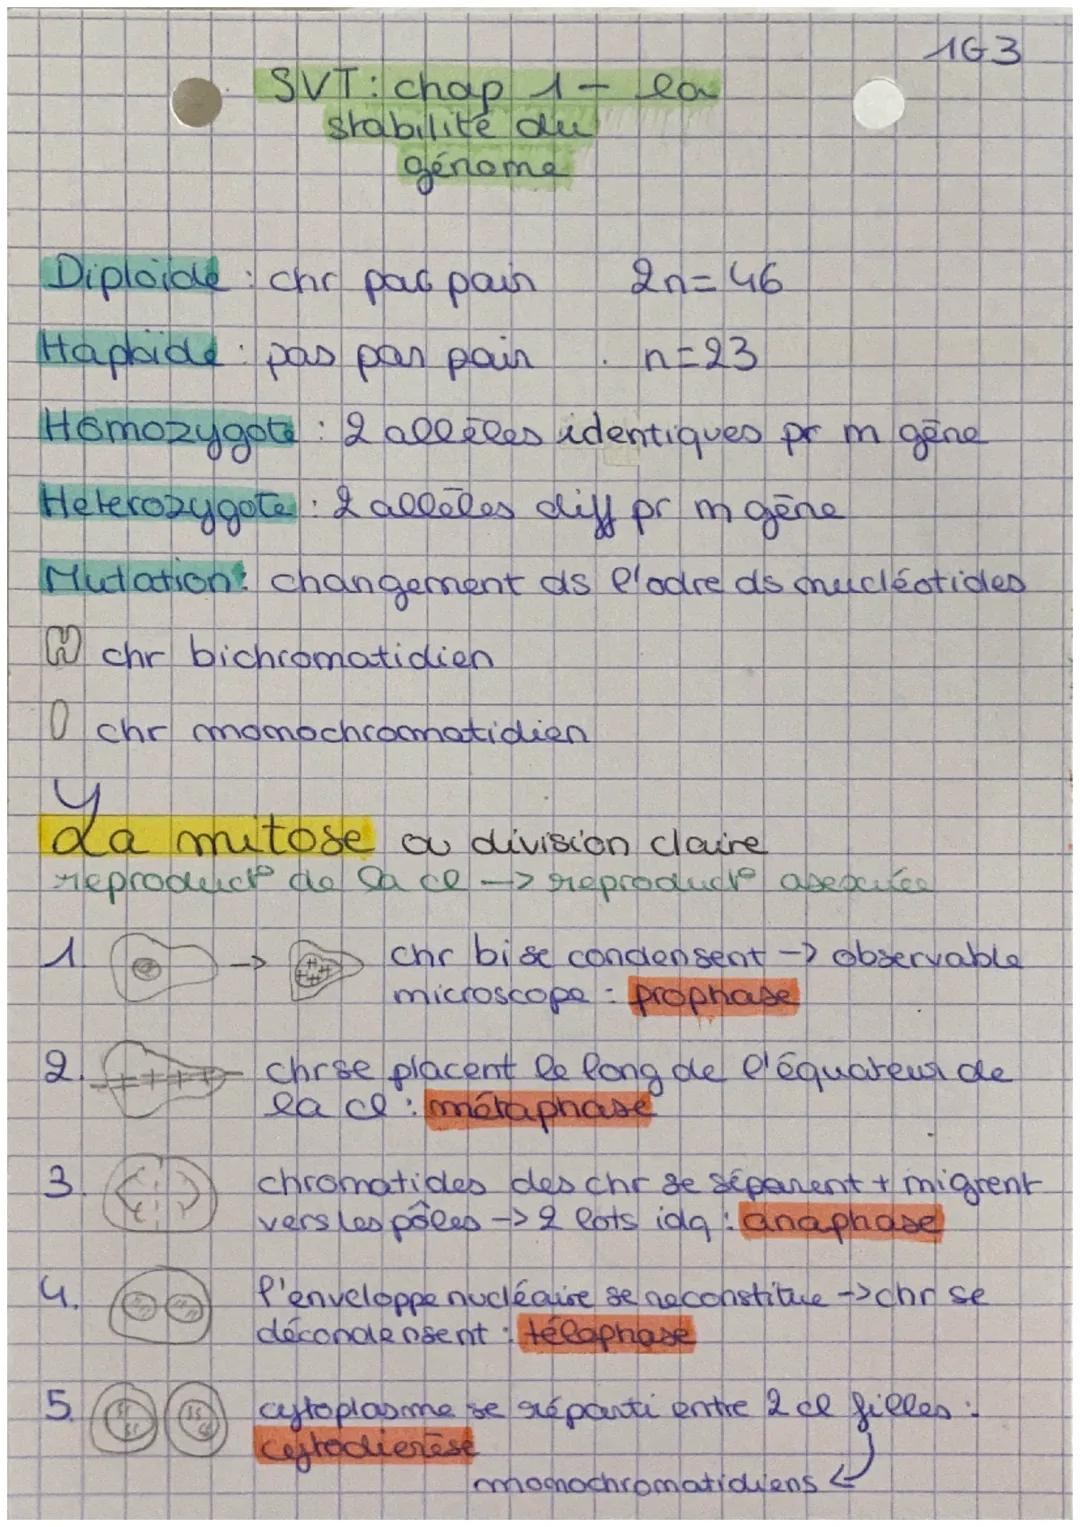 1G3
SVT: chap 1 - la
stabilité du
génome
Diploïde : chr par pair 2n=46
Haploïde : pas par pair . n=23
Homozygote : 2 allèles identiques pr m gène
Héterozygote : 2 allèles diff pr m gène
Mutation : changement ds l'odre ds nucléotides
chr bichromatidien
chr monochromatidien
La mitose ou division claire
reproduct° de la cl -> reproduct° asexuée
1. -> chr bi se condensent -> observable
microscope : prophase
2. chr se placent le long de l'équateur de
la cl : métaphase
3. chromatides des chr se séparent + migrent
vers les pôles -> 2 lots idq : anaphase
4. l'enveloppe nucléaire se reconstitue -> chr se
décondensent : télophase
5. cytoplasme se réparti entre 2 cl filles :
cytodiérèse
monochromatidiens